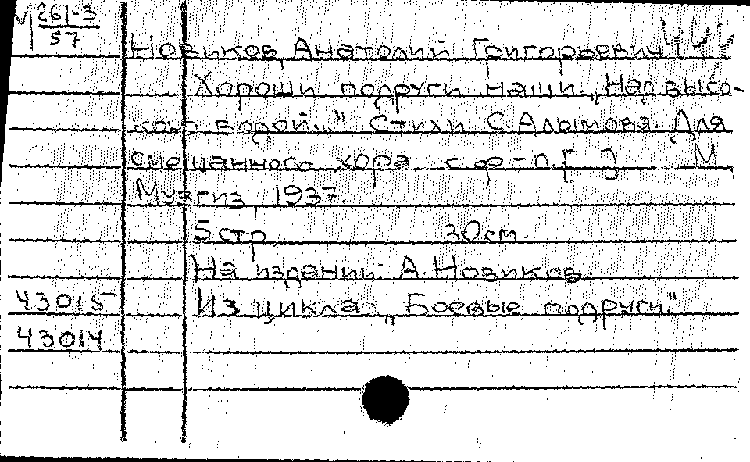 261-3
57
Новиков, Анатолий Григорьевич
Хороши подруги наши. "Над высо-
кою водой..." Стихи С. Алымова. Для
смешанного хора с ф-п. [ ] М.,
Музгиз, 1937
5 стр. 30 см
На издании: А. Новиков.
43015 Из цикла "Боевые подруги."
43014